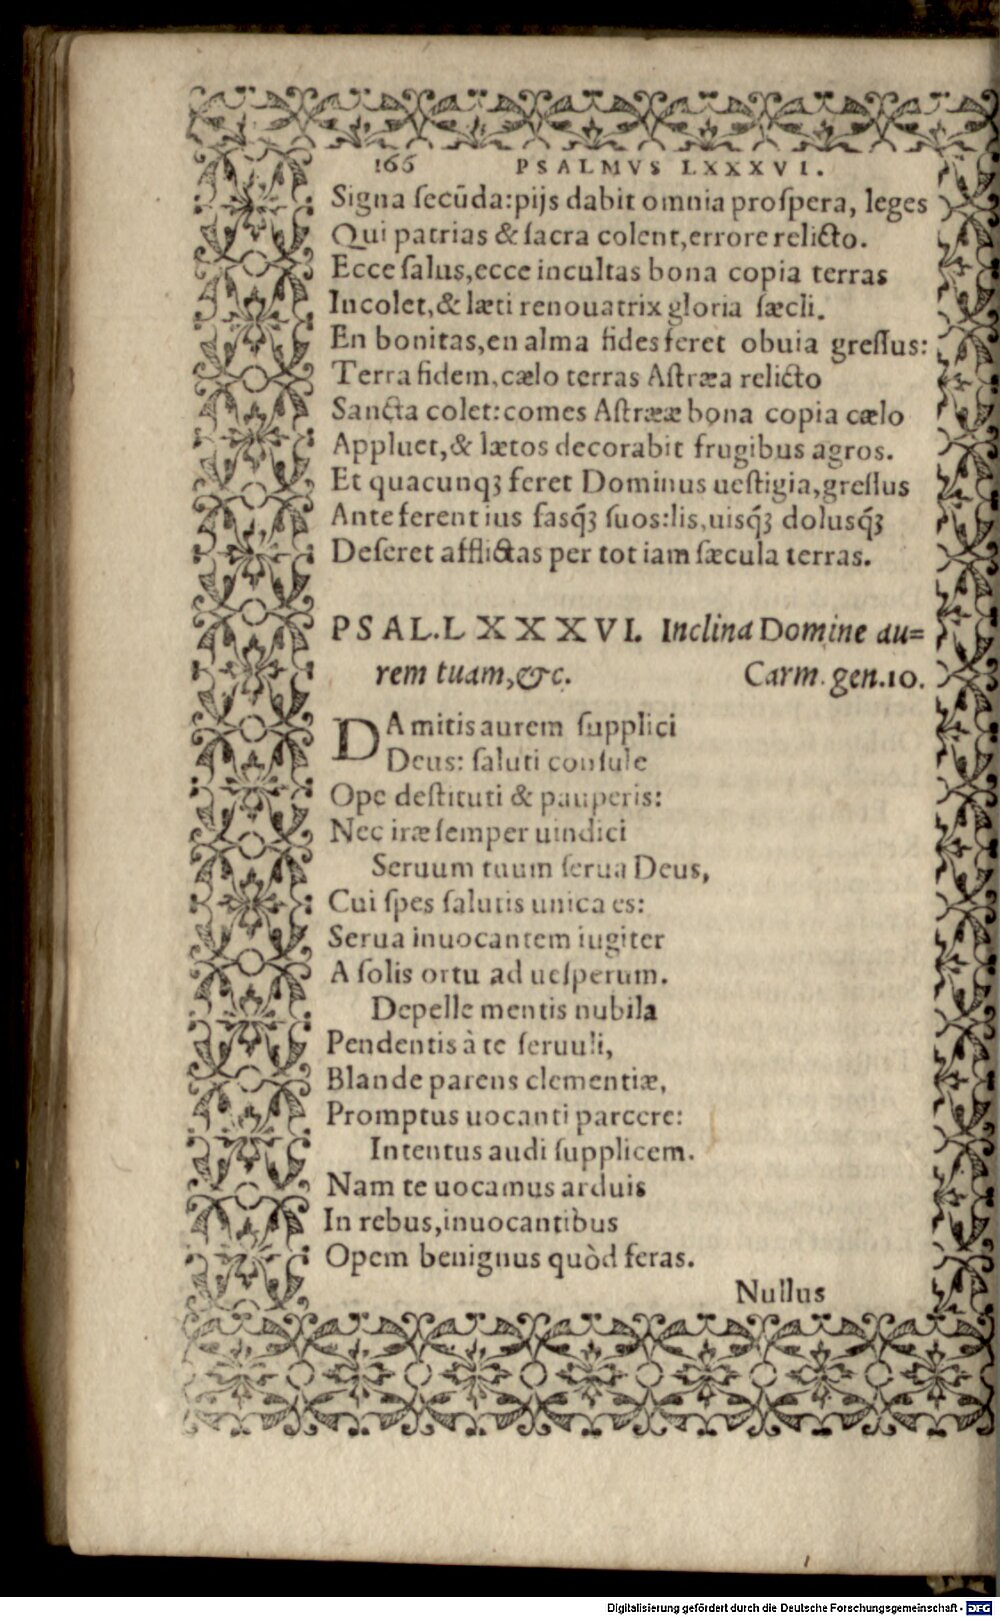 166 PSALMVS LXXXVI.
Signa ſecūda:pijs dabit omnia proſpera, leges
Qui patrias & ſacra colent,errore relicto.
Ecce ſalus,ecce incultas bona copia terras
Incolet,& læti renouatrix gloria ſæcli.
En bonitas,en alma fides feret obuia greſſus:
Terra fidem,cælo terras Aſtræa relicto
Sancta colet:comes Aſtrææ bona copia cælo
Appluet,& lætos decorabit frugibus agros.
Et quacunqꝫ feret Dominus ueſtigia,greſſus
Anteferent ius fasq́ꝫ ſuos:lis,uisq́ꝫ dolusq́ꝫ
Deſeret afflictas per tot iam ſæcula terras.
PSAL.LXXXVI. Inclina Domine au=
rem tuam,&c. Carm. gen.10.
DA mitis aurem ſupplici
Deus: ſaluti conſule
Ope deſtituti & pauperis:
Nec iræ ſemper uindici
Seruum tuum ſerua Deus,
Cui ſpes ſalutis unica es:
Serua inuocantem iugiter
A ſolis ortu ad ueſperum.
Depelle mentis nubila
Pendentis à te ſeruuli,
Blande parens clementiæ,
Promptus uocanti parcere:
Intentus audi ſupplicem.
Nam te uocamus arduis
In rebus,inuocantibus
Opem benignus quòd feras.
Nullus
Digitalisierung gefördert durch die Deutsche Forschungsgemeinschaft - DFG